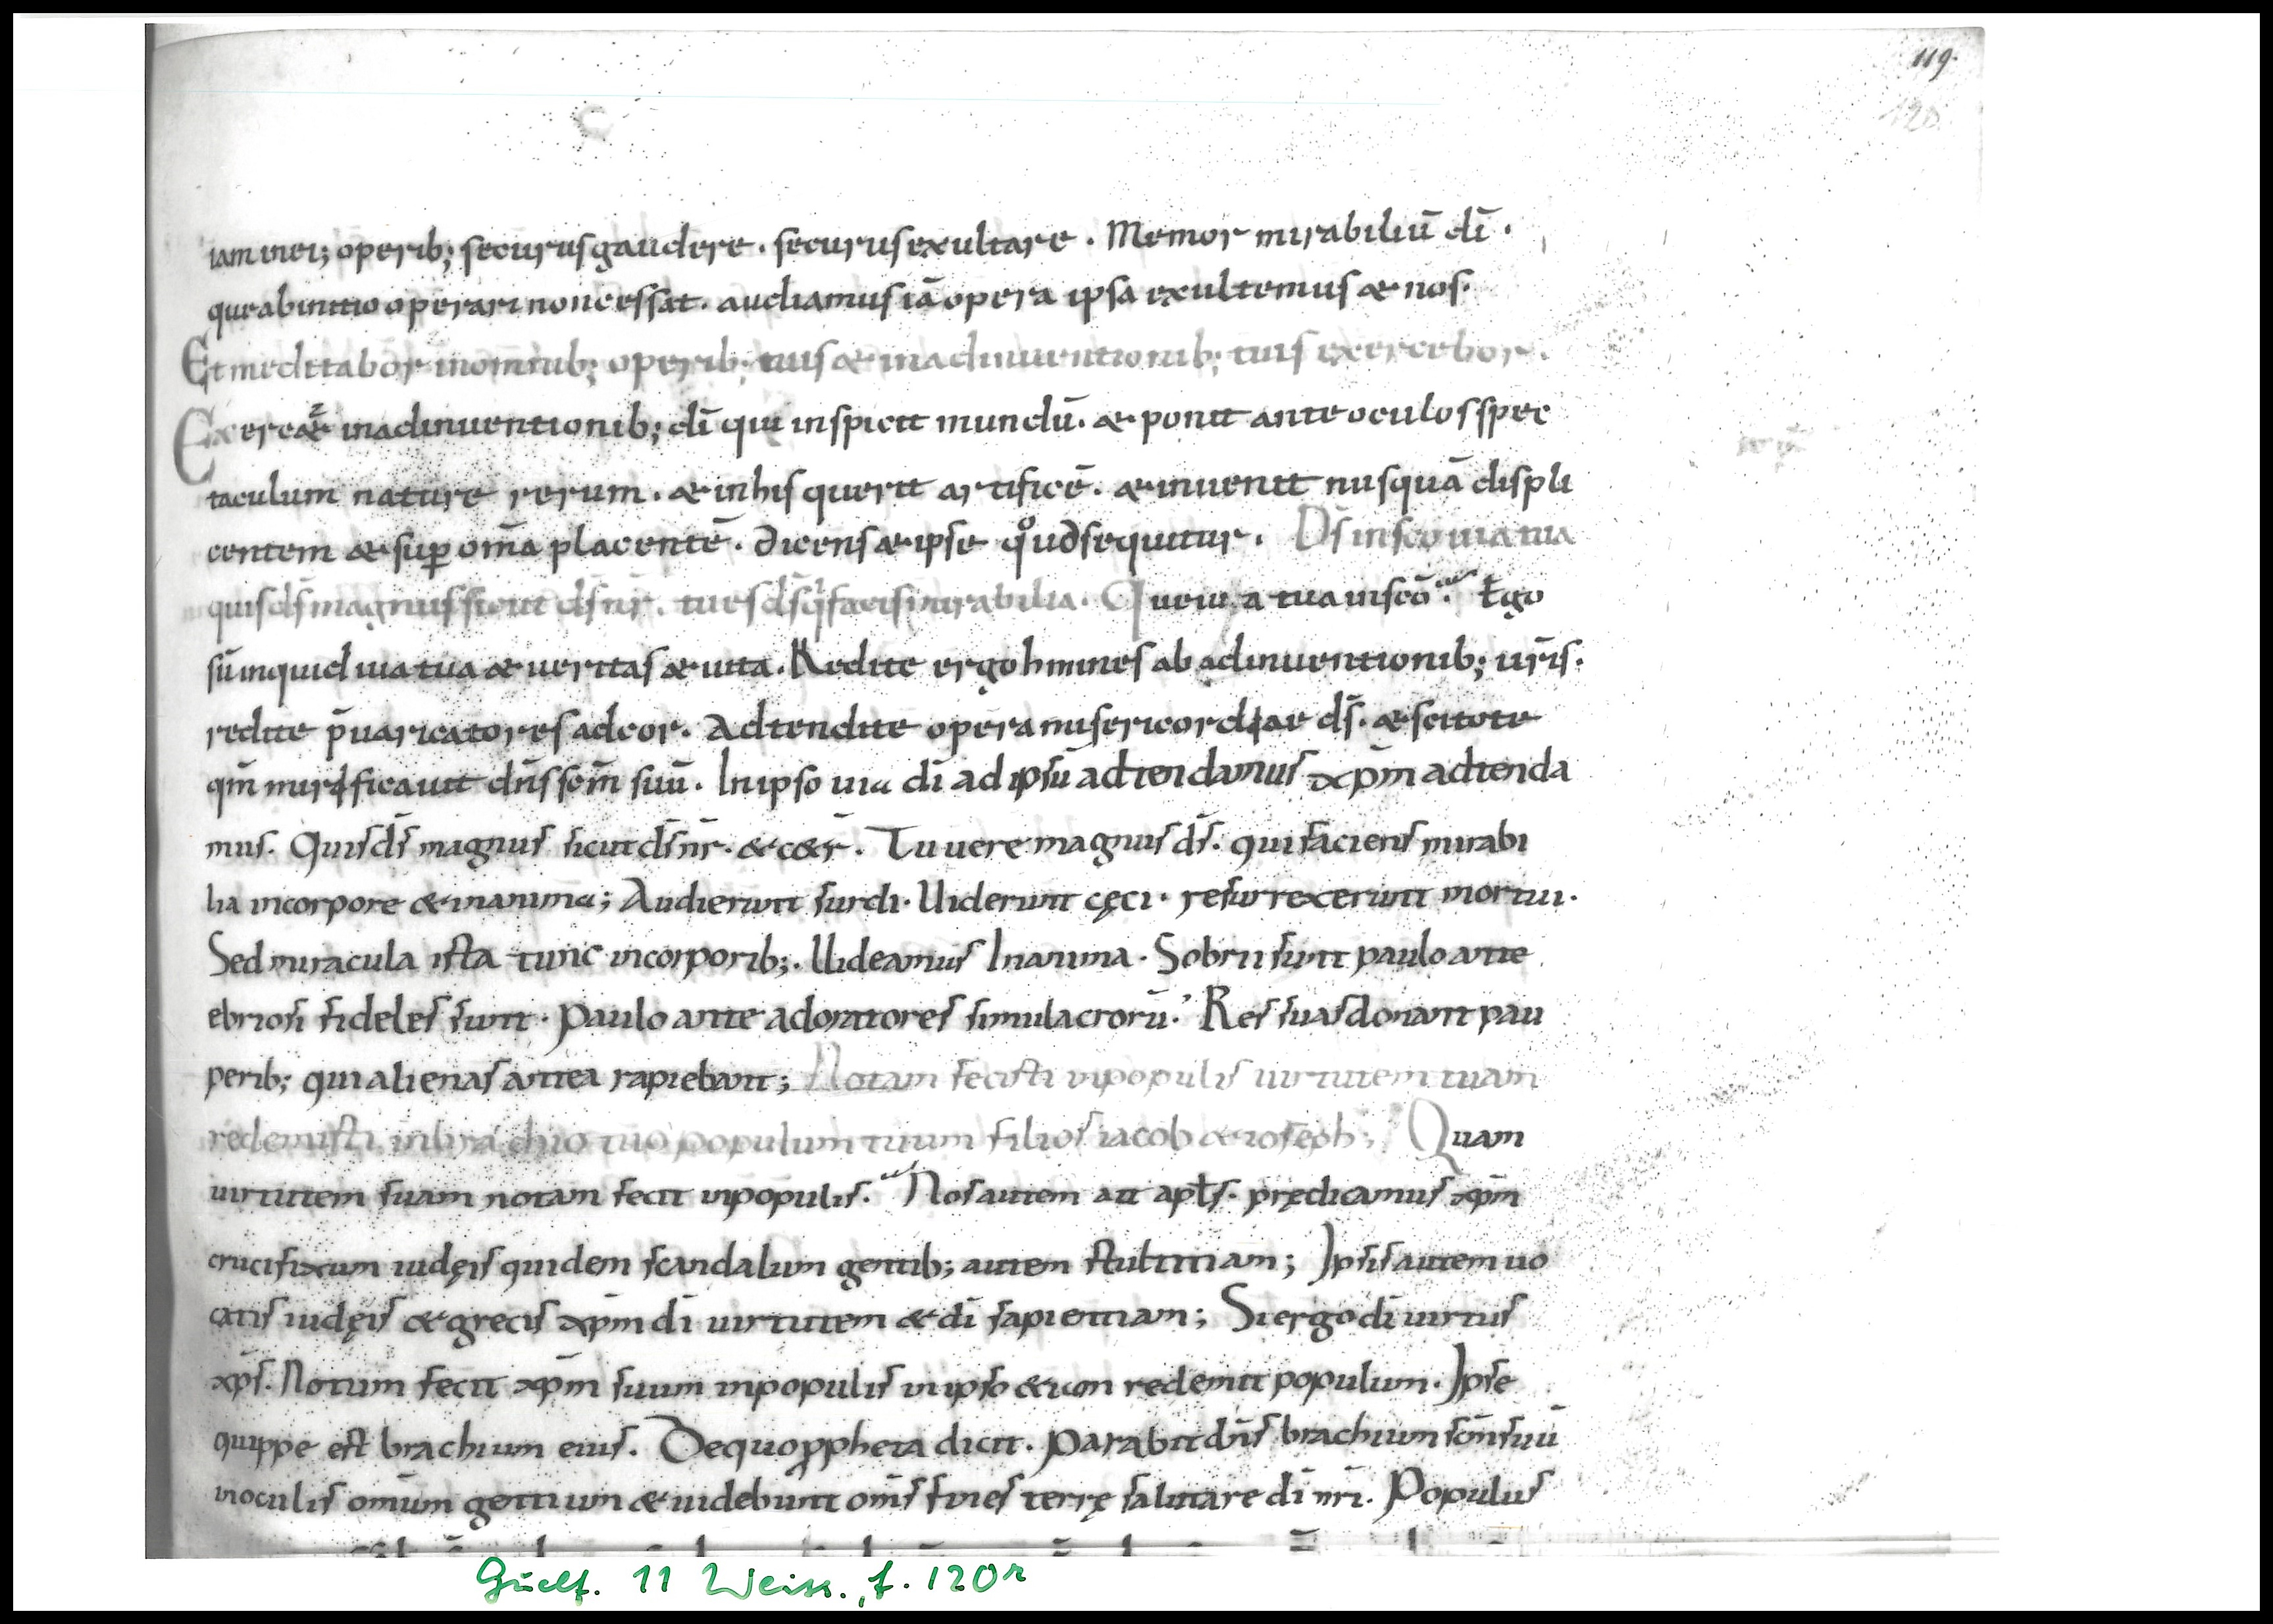 119.
120
iam in ei; operib; securus gaudere. securus exultare. Memor mirabiliū dī.
que ab initio operari non cessat. audiamus iā opera ipsa exultemus & nos.
Et meditabor in omnib; operib; tuis & in adinuentionib; tuis exercebor.
Exerc&ur in adinuentionib; dī qui inspicit mundū. & ponit ante oculos spec
taculum nature rerum. & in his querit artificē. & inuenit nusquā displi
centem & sup̄ om̄a placentē. dicens & ipse quod sequitur. D̄s in sc̄o uia tua
quis d̄s magnus sicut d̄s nr̄. tu es d̄s q̄ facis mirabilia. Que uia tua in sc̄o. Ego
sū inquid uia tua & ueritas & uita. Redite ergo hmines ab adinuentionib; ur̄is.
redite p̄uaricatores ad cor. Adtendite opera misericordiae d̄s. & scitote
qm̄ mirificauit dn̄s sc̄m suū. In ipso uia dī ad ipsū adtendamus xp̄m adtenda
mus. Quis d̄s magnus sicut d̄s nr̄. & c&r̄. Tu uere magnus d̄s. qui faciens mirabi
lia in corpore & in anima; Audierunt surdi. Uiderunt cęci. resurrexerunt mortui.
Sed miracula ista tunc in corporib;. Uideamus In anima. Sobrii sunt paulo ante
ebriosi fideles sunt. Paulo ante adoratores simulacrorū. Res suas donant pau
perib; qui alienas antea rapiebant; Notam fecisti in populis uirtutem tuam
redemisti in brachio tuo populum tuum filios iacob & ioseph; Quam
uirtutem suam notam fecit in populis. Nos autem ait apl̄s. prędicamus xp̄m
crucifixum iudęis quidem scandalum gentib; autem stultitiam; Ipsis autem uo
catis iudęis & grecis xp̄m dī uirtutem & dī sapientiam; Si ergo dī uirtus
xp̄s. Notum fecit xp̄m suum in populis in ipso &iam redemit populum. Ipse
quippe est brachium eius. De quo ꝓpheta dicit. Parabit dn̄s brachium sc̄m suū
in oculis omīum gentium & uidebunt om̄s fines terrę salutare dī nr̄i. Populus
Guelf. 11 Weiss., f. 120r